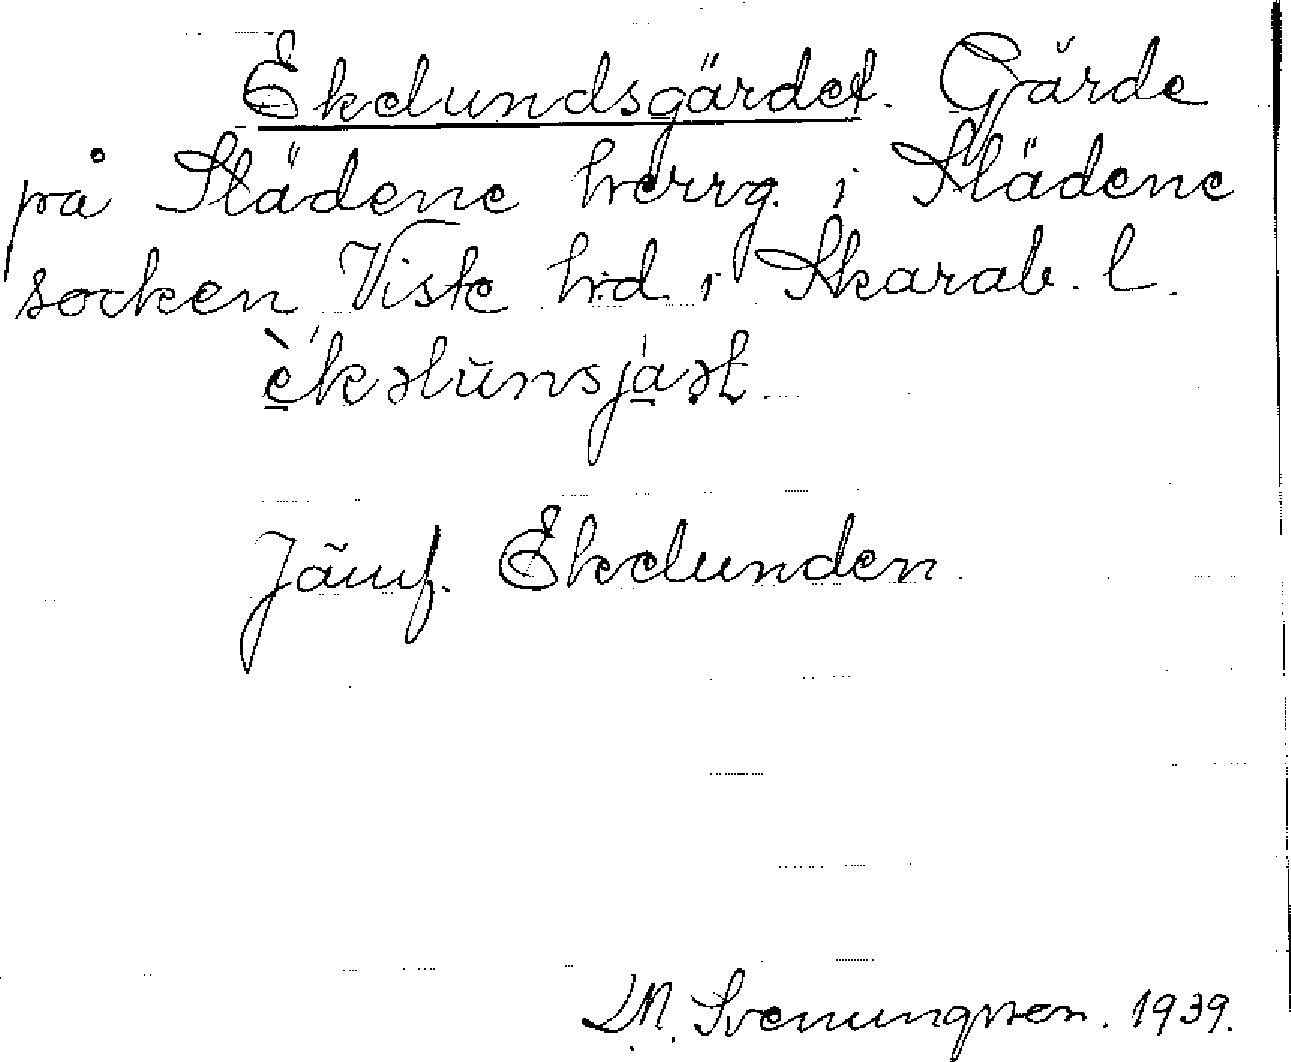 Ekelundsgärdet. Gärde
på Slädene herrg. i Slädene
socken Viste hd i Skarab. l.
èkəlŭnsjaət.
Jämf. Ekelunden
Svenungsson. 1939.